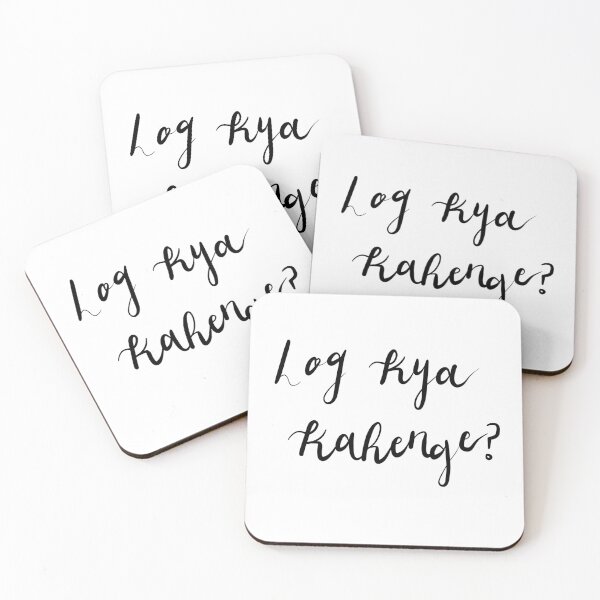 Log Kya
Kahenge?
Log Kya
Kahenge?
Log Kya
Kahenge?
Log Kya
Kahenge?